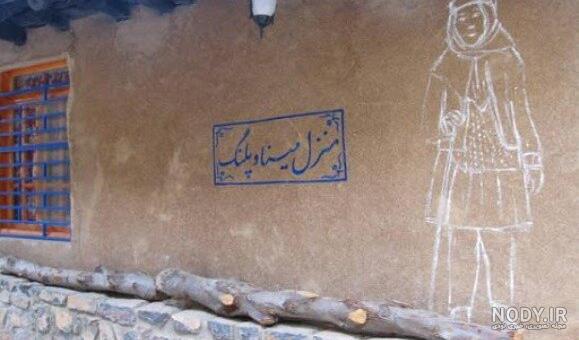 منزل مینا و پلنگ
NODY.IR
مجله تصویری، خبری نودی